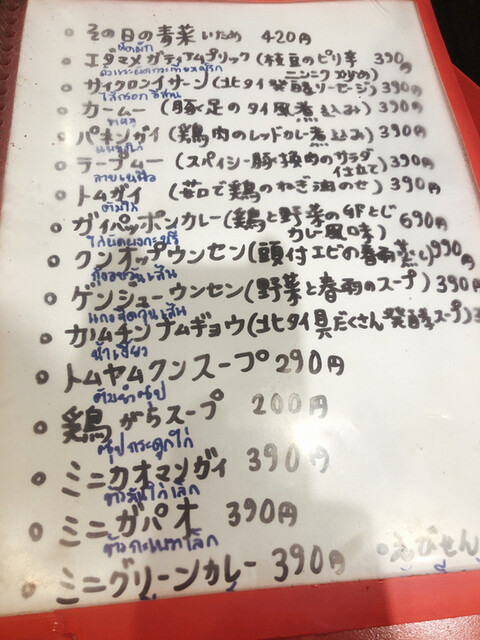 その日の青菜いため 420円
ผัดผัก
エダマメガティアムプリック(枝豆のピリ辛 390円
ニンニクかめ)
サイクロンイサーン(北タイ発酵ソーセージ)390円
ไส้กรอกอีสาน
カームー(豚足のタイ風煮込み)390円
ขาหมู
パネンガイ(鶏肉のレッドカレー煮込み)390円
แพนงไก่
ラープムー(スパイシー豚挽肉のサラダ
仕立て)390円
ลาบหมู
トムガイ(茹で鶏のねぎ油のせ)390円
ต้มไก่
ガイパッポンカレー(鶏と野菜の卵とじ
カレー風味)690円
ไก่ผัดผงกะหรี่
クンオップウンセン(頭付エビの春雨蒸し)990円
กุ้งอบวุ้นเส้น
ゲンジューウンセン(野菜と春雨のスープ)390円
แกงจืดวุ้นเส้น
カノムチンナムギョウ(北タイ具だくさん発酵スープ)
น้ำเงี้ยว
トムヤムクンスープ290円
ต้มยำซุป
鶏がらスープ 200円
ซุปกระดูกไก่
ミニカオマンガイ 390円
ข้าวมันไก่เล็ก
ミニガパオ 390円
ข้าวกะเพราเล็ก
ミニグリーンカレー 390円
えびせん